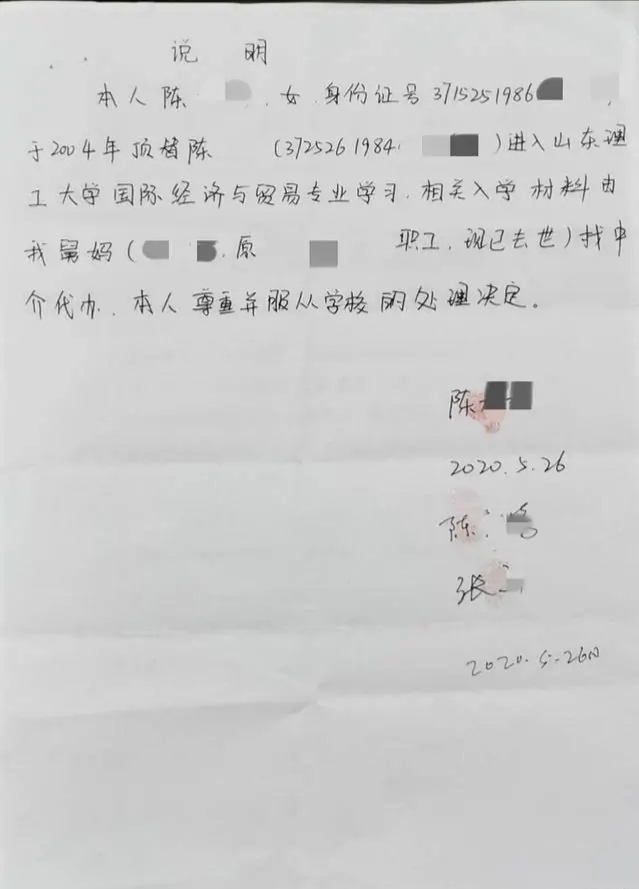 说 明
本人陈 , 女, 身份证号 3715251986 ,
于2004年顶替陈 (3725261984 )进入山东理
工大学国际经济与贸易专业学习, 相关入学材料由
我舅妈( , 原 职工, 现已去世)找中
介代办, 本人尊重并服从学校的处理决定。
陈
2020.5.26
陈
张
2020.5.26日